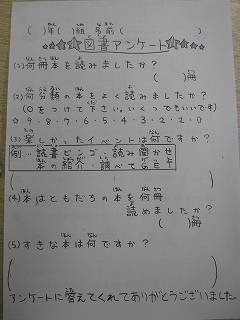 ( )年( )組 名前( )
☆☆☆図書アンケート☆☆☆
(1)何冊本を読みましたか?
( )冊
(2)何分類の本をよく読みましたか?
(○をつけて下さい。いくつでもいいです)
☆ 9・8・7・6・5・4・3・2・1・0
(3)楽しかったイベントは何ですか?
例…読書ビンゴ・読み聞かせ
本の紹介・調べてGET
(4)本はともだちの本を何冊
読めましたか?
( )冊
(5)すきな本は何ですか?
( )
アンケートに答えてくれてありがとうございました。